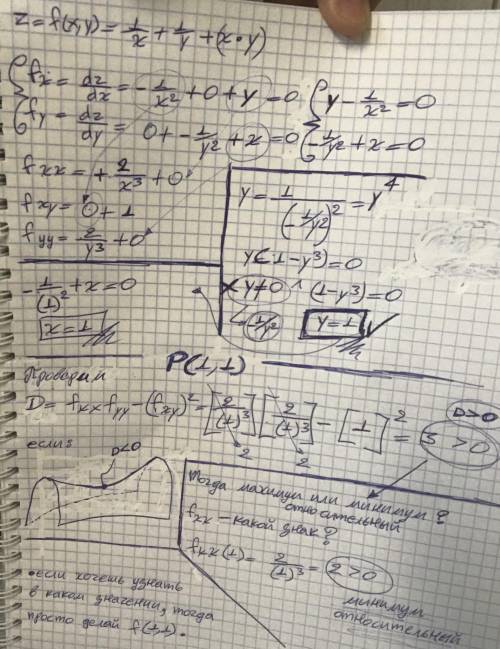 z = f(x,y) = 1/x + 1/y + (x·y)
fx = dz/dx = -1/x² + 0 + y = 0
fy = dz/dy = 0 + -1/y² + x = 0
y - 1/x² = 0
-1/y² + x = 0
fxx = +2/x³ + 0
fxy = 0 + 1
fyy = 2/y³ + 0
y = 1/(-1/y²)² = y⁴
y(1-y³) = 0
y≠0 ^ (1-y³) = 0
(1/y²)
y = 1
-1/(1)² + x = 0
x = 1
P(1,1)
Проверим
D = fxx fyy - (fxy)² = [2/(1)³] [2/(1)³] - [1]² = 3 > 0
2 2
D>0
если:
D<0
Тогда максимум или минимум?
относительный
fxx - какой знак?
fxx(1) = 2/(1)³ = 2>0
минимум
относительный
•если хочешь узнать
в каком значении, тогда
просто делай f(1,1).